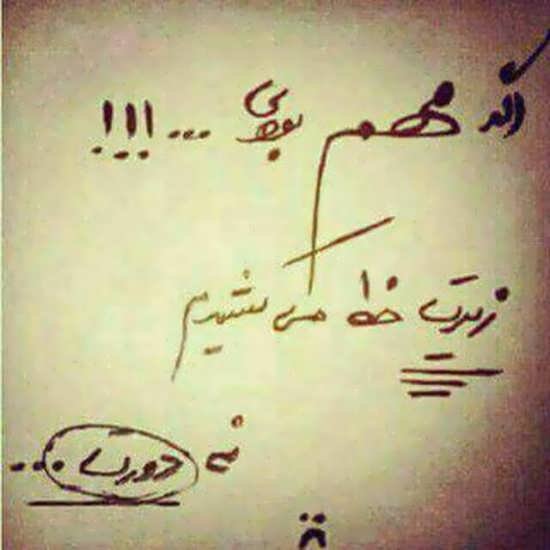 اگه مهم بودی ... !!!
زیرت خط می کشیدم
نه دورت ...